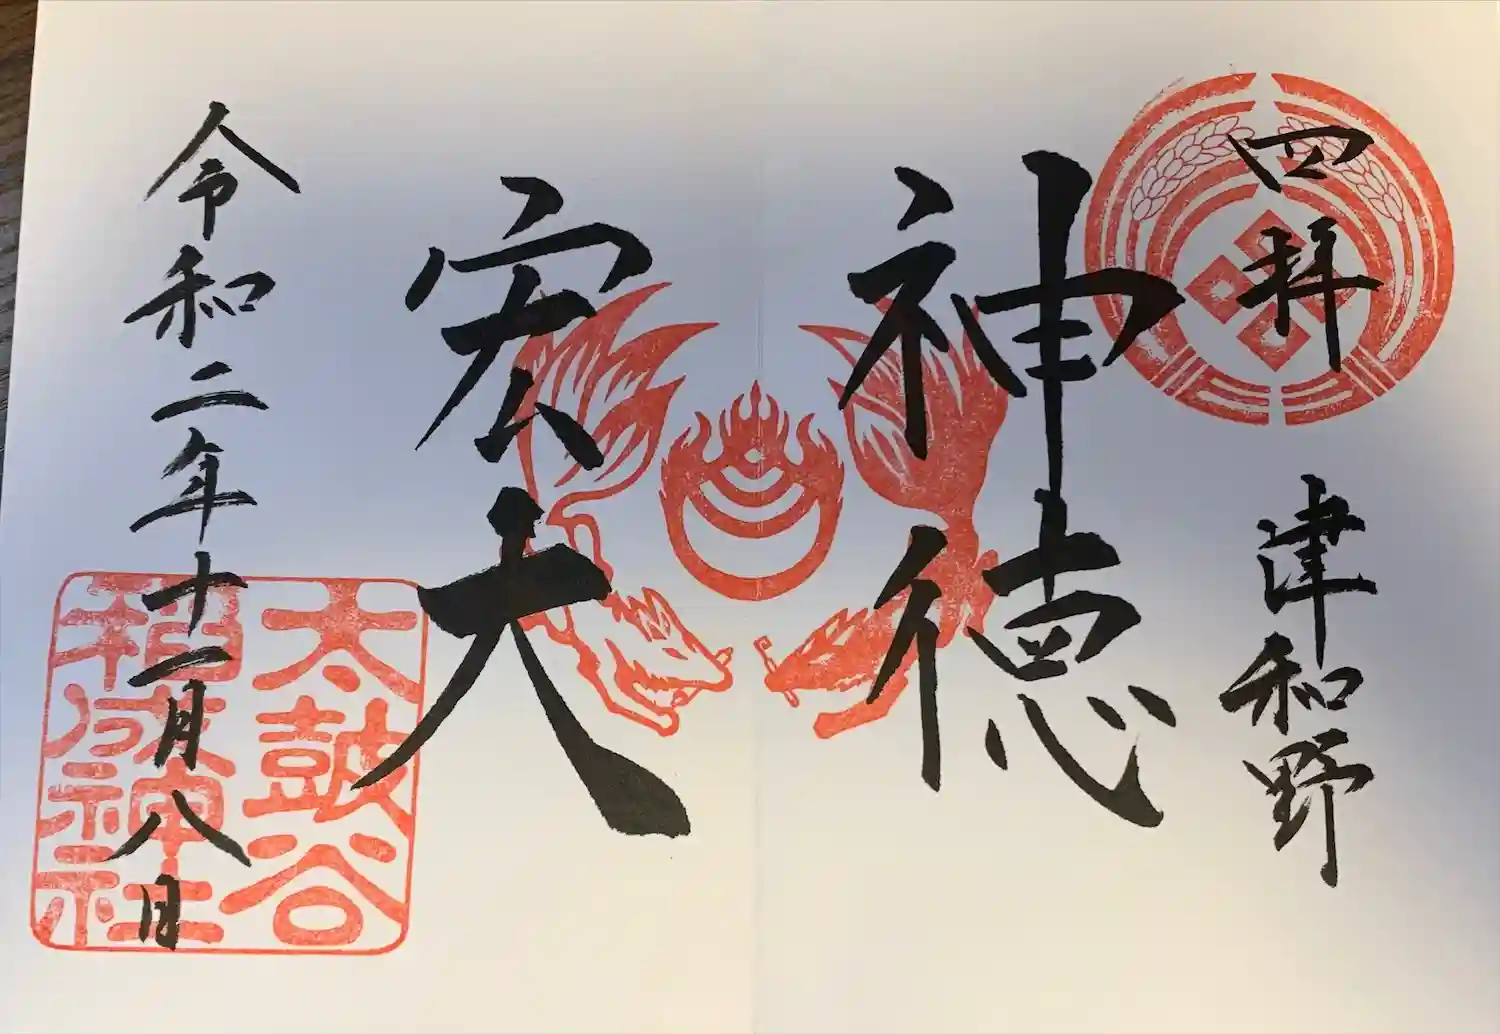 四拝 津和野
神徳
宏大
令和二年十一月八日
太鼓谷
稲成神社